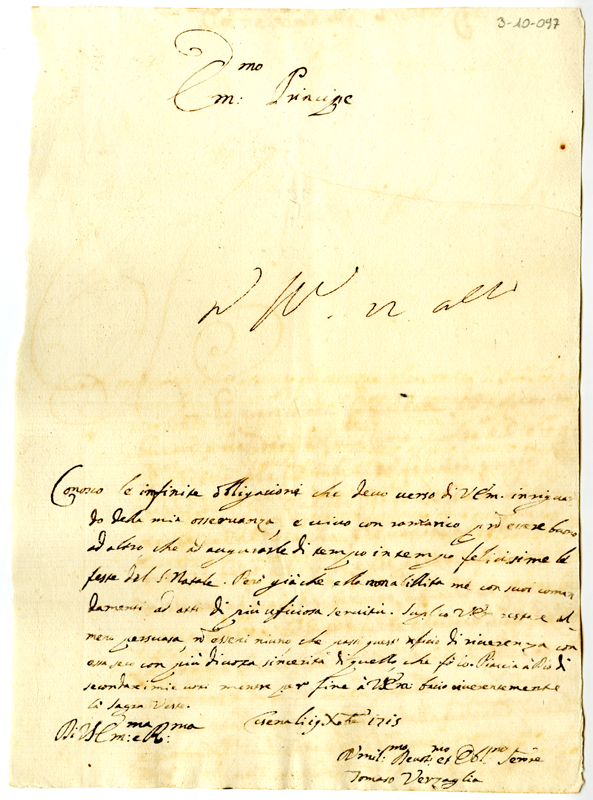 3-10-097
Em:mo Principe
Conosco le infinite obligazioni che devo verso di V Em. in rigua
do della mia osservanza, e vivo con ramarico p non essere buono
ad altro che ad augurarle di tempo in tempo felicissime le
feste del S. Natale. Però già che ella non abilita me con suoi coman
damenti ad atti di più uficiosa servitù. Suplico V Em restare al
meno persuasa, non esservi niuno che passi quest' uficio di riverenza con
esso seco con più divota sincerità di quello, che fò io. Piaccia à Dio di
secondare i miei voti mentre per fine à V Em bacio riverentemente
la Sagra Veste.
Di V Em:ma e R:ma Cesena li 19 Xbre 1715
Umil:mo Devot:mo et Obl:mo Servre
Tomaso Verzaglia